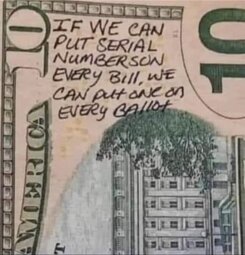 IF WE CAN
PUT SERIAL
NUMBERS ON
EVERY BILL, WE
CAN PUT ONE ON
EVERY BALLOT
10
10
AMERICA